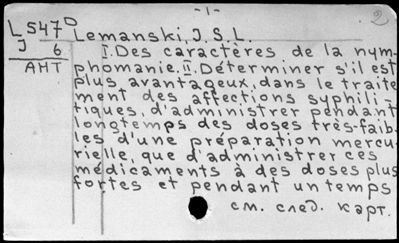 -1-
2
L547D Lemanski, J.S.L.
J 6 I. Des caractères de la nym-
АНТ phomanie. II. Déterminer s'il est
plus avantageux, dans le traite
ment des affections syphili-
tiques, d'administrer pendant
longtemps des doses très-faib-
les d'une préparation mercu-
rielle, que d'administrer ces
médicaments à des doses plus
fortes et pendant un temps
см. след. карт.